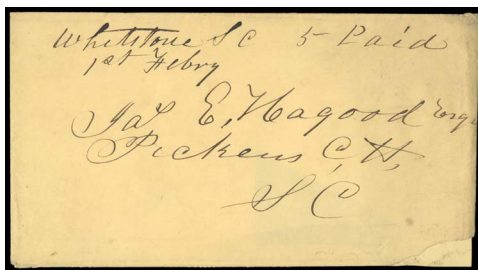 Whetstone S C 5 Paid
1st Febry
Jas E, Hagood Esqr
Pickens C, H,
S C